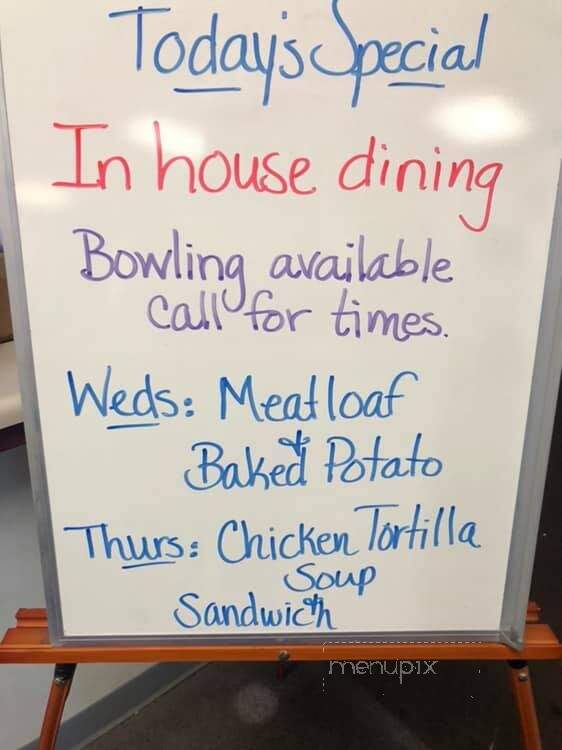 Today's Special
In house dining
Bowling available
Call for times.
Weds: Meatloaf
&
Baked Potato
Thurs: Chicken Tortilla
Soup
&
Sandwich
menupix